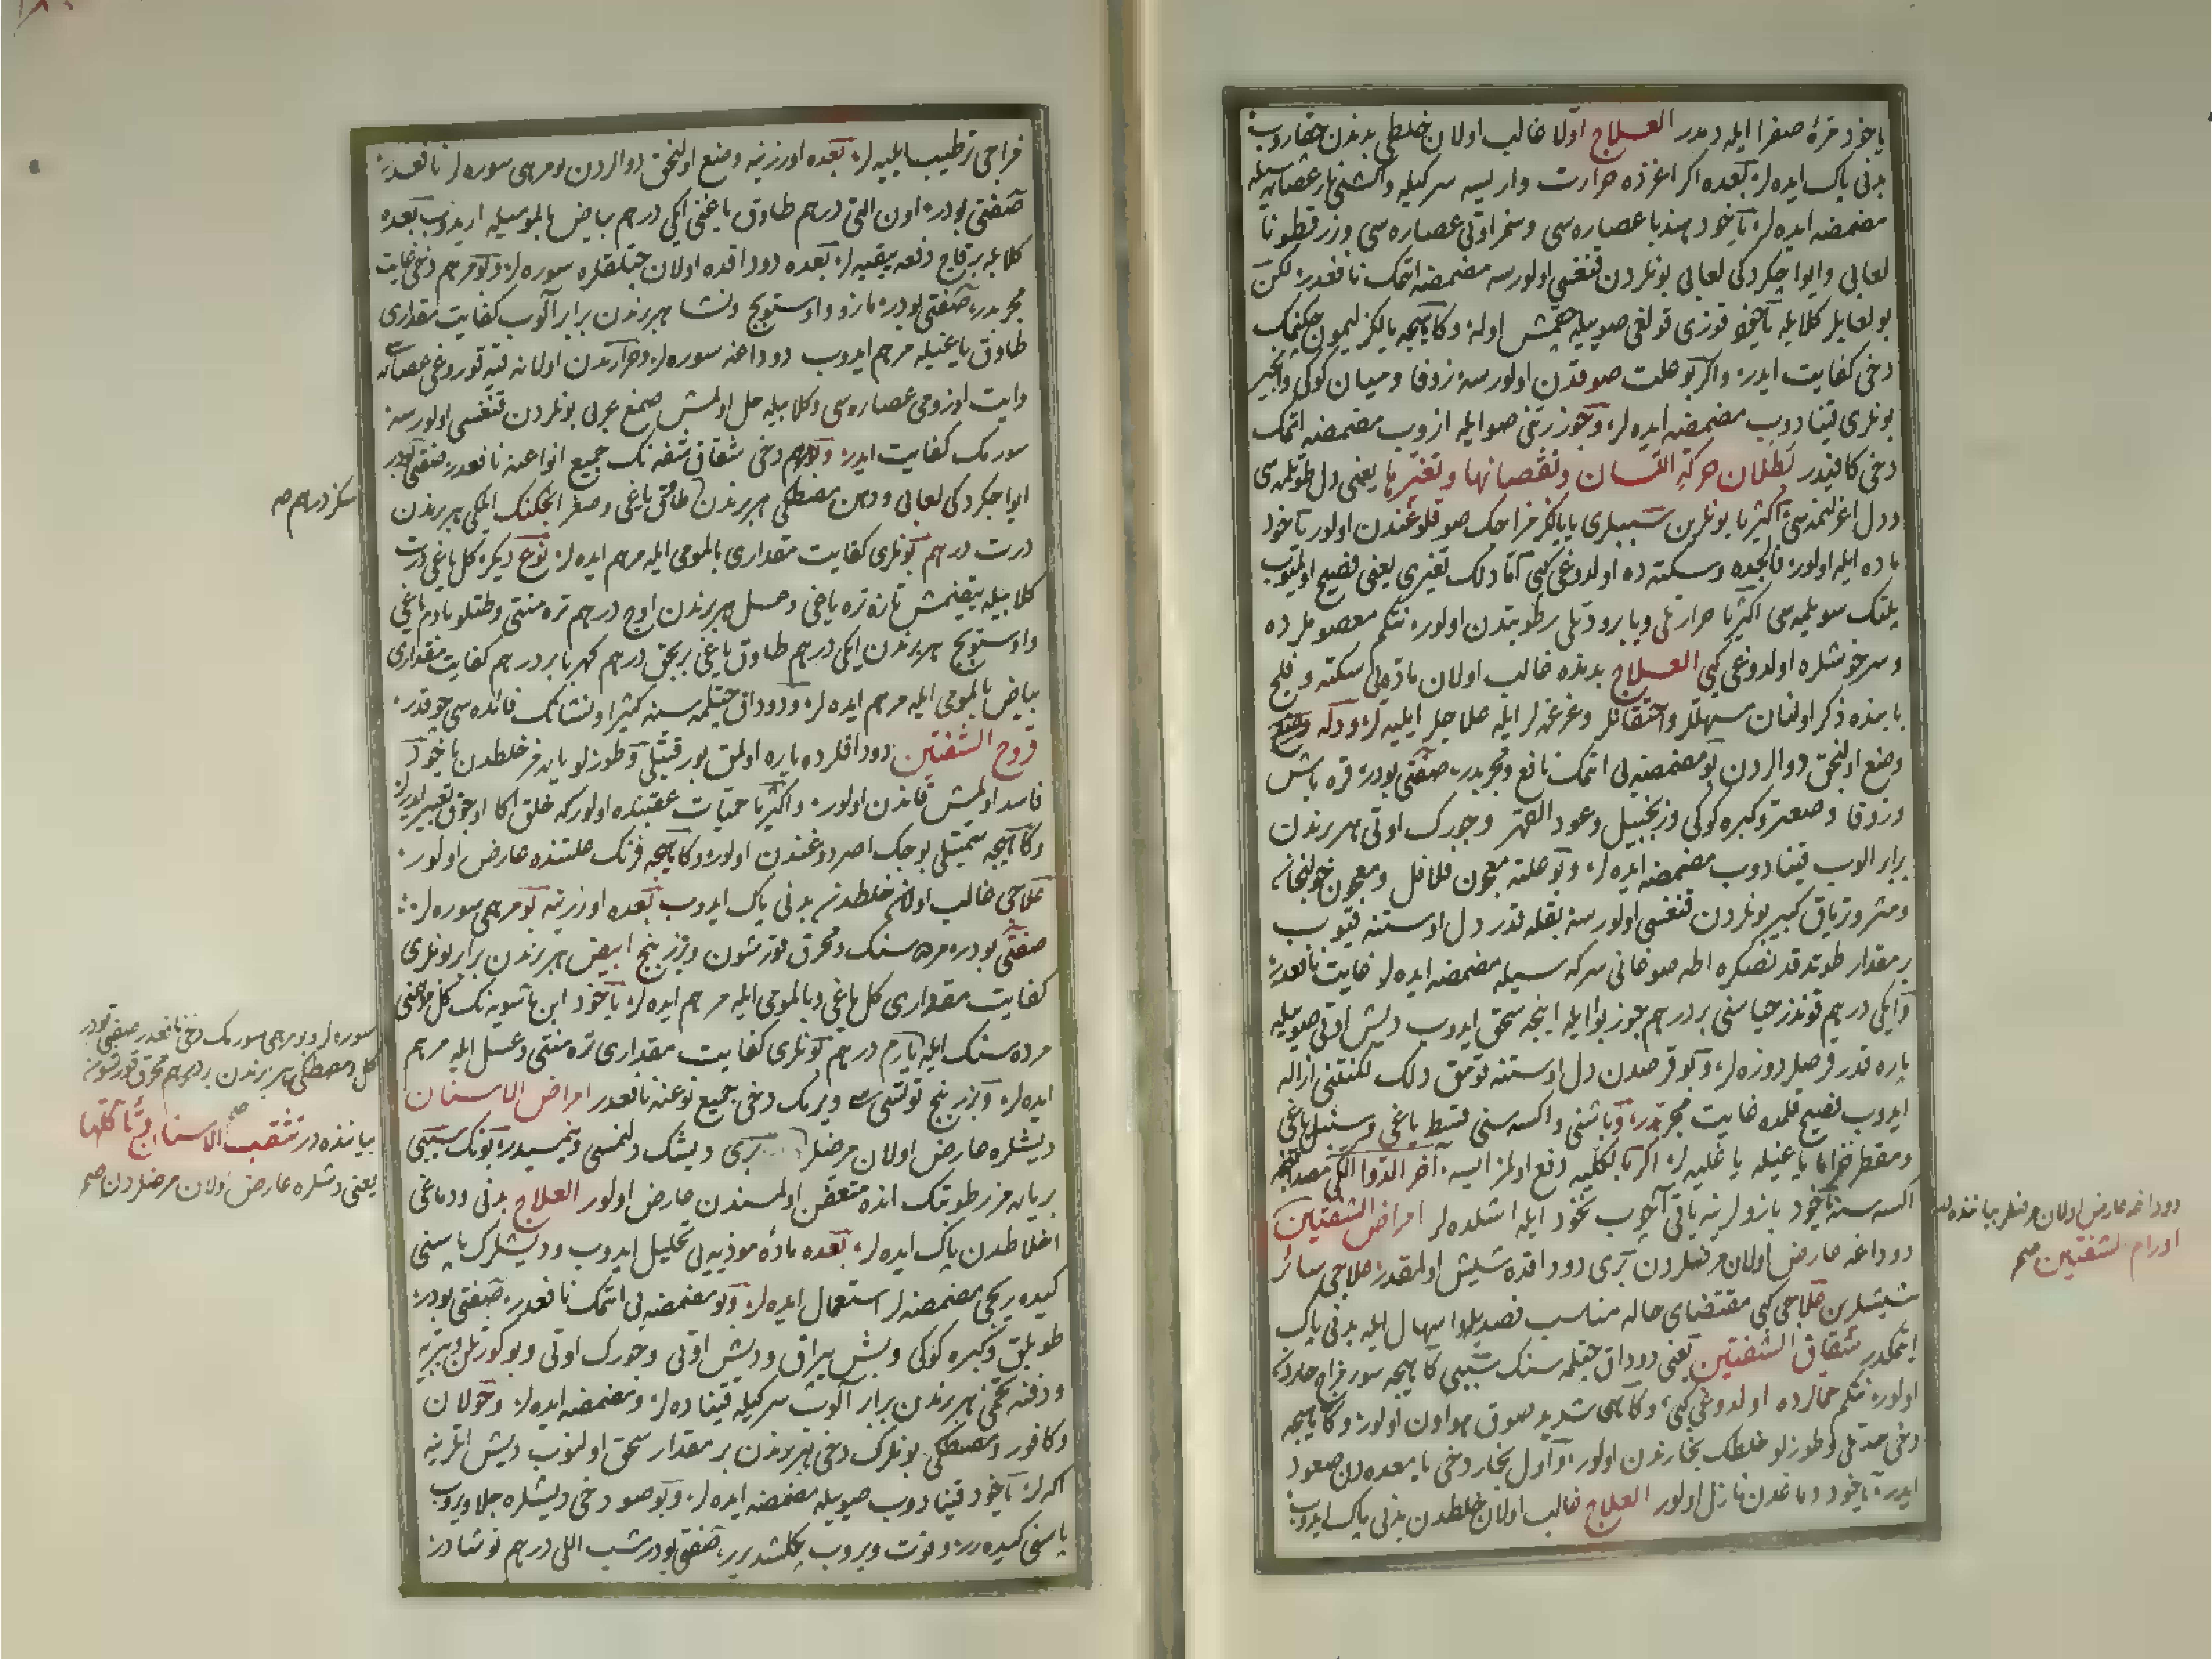 ياخود مرۀ صفرا ايله دمدر العلاج اوّلا غالب اولان خلطی بدندن چقاروب
بدنی پاك ايده لر بعده اكر اغزده حرارت وار ايسه سركيله واكشی نار عصاره سيله
مضمضه ايده لر ياخود هندبا عصاره سی وسمز اوتی عصاره سی وبزر قطونا
لعابی وايوا چكردكی لعابی بونلردن قنغسی اولورسه مضمضه اتمك نافعدر لكن
بو لعابلر كلابله ياخود قوزی قولغی صوييله چقمش اوله وكاهيجه يالكز ليمون چكنمك
دخی كفايت ايدر واكر بو علت صوقدن اولورسه زوفا وميان كوكی وانجير
بونلری قينادوب مضمضه ايده لر وجوز ربّنی صو ايله ازوب مضمضه اتمك
دخی كافيدر بطلان حركة اللسان ونقصانها وتغيّرها يعنی دل طوتلمه سی
ودل اغرلنمه سی اكثريا بونلرين سببلری يا يالكز مزاجك صوقلوغندن اولور ياخود
ماده ايله اولور فالجده وسكته ده اولدوغی كبی امّا دلك تغيّری يعنی فصيح اولميوب
پلتك سويلمه سی اكثريا حرارتلی ويا برودتلی رطوبتدن اولور نتكم معصوملرده
وسرخوشلرده اولدوغی كبی العلاج بدنده غالب اولان مادّه يی سكته وفلج
بابنده ذكر اولنان مسهللر واحتقانلر وغرغره لر ايله علاجلر ايليه لر ودله
وضع اولنجق دوالردن بو مضمضه يی اتمك نافع ومجربدر صفتی بودر قره باش
وزوفا وصعتر وكبره كوكی وزنجبيل وعود القهر وچورك اوتی هر برندن
برابر الوب قينادوب مضمضه ايده لر وبو علته معجون فلافل ومعجون خولنجان
ومثروترياق كبير بونلردن قنغسی اولورسه بقله قدر دل اوستنه قيوب
بر مقدار طوتدقدنصكره اطه صوغانی سركه سيله مضمضه ايده لر غايت نافعدر
وايكی درهم قوندز خياسنی بر درهم جوز بوا ايله اينجه سحق ايدوب ديش اوتی صوييله
پاره قدر قرصلر دوزه لر وبو قرصدن دل اوستنه قومق دلك لكنتنی ازاله
ايدوب فصيح قلمده غايت مجربدر وباشنی واكسه سنی قسط ياغی وسنبل ياغی
ومقطر خزاما ياغيله ياغليه لر اكر بالكليه دفع اولمز ايسه آخر الدوا الكی
اكسه سنه ياخود بازولرينه ياقی آچوب نخود ايله اشلده لر امراض الشفتين
دوداغه عارض اولان مرضلردن بری دوداقده شيش اولمقدر علاجی سائر
شيشلرين علاجی كبی مقتضای حاله مناسب فصد يله واسهال ايله بدنی پاك
ايتمكدر شقاق الشفتين يعنی دوداق چتلمه سنك سببی كاهيجه سوء مزاج حاردن
اولور نتكم حمالرده اولدوغی كبی وكاهی شديد صوق هوادن اولور وكاهيجه
دخی حدتلی وطوزلو خلطك بخارندن اولور واول بخار دخی يا معده دن صعود
ايدر ياخود دماغدن نازل اولور العلاج غالب اولان خلطدن بدنی پاك ايدوب
دوداغه عارض اولان مرضلر بيانندہ در
اورام الشفتين صح
مزاجی ترطيب ايليه لر بعده اوزرينه وضع اولنجق دوالردن بو مرهمی سوره لر نافعدر
صفتی بودر اون التی درهم طاوق ياغنی ايكی درهم بياض بالموميله اريدوب بعده
كلابله بر قاچ دفعه ييقيه لر بعده دوداقده اولان چتلقلره سوره لر وبو مرهم دخی غايت
مجربدر صفتی بودر مازو واوستوبج ونشا هر برندن برابر آلوب كفايت مقداری
طاوق ياغيله مرهم ايدوب دوداغه سوره لر وحرارتدن اولانه قتی قوروغی عصاره سی
وايت اوزومی عصاره سی وكلابيله حل اولمش صمغ عربی بونلردن قنغسی اولورسه
سورمك كفايت ايدر وبو مرهم دخی شقاق شفه نك جميع انواعنه نافعدر صفتی بودر
ايوا چكردكی لعابی ودهن مصطكی هر برندن طاوق ياغی وصغر انجكنك ايلكی هر برندن
سكز درهم صح
درت درهم بونلری كفايت مقداری بالمومی ايله مرهم ايده لر نوع ديكر كل ياغی درت
كلابيله ييقنمش تازه تره ياغی وعسل هر برندن اوچ درهم تره منتی وطتلو بادم ياغی
واوستوبج هر برندن ايكی درهم طاوق ياغی بر بچق درهم كهربا بر درهم كفايت مقداری
بياض بالمومی ايله مرهم ايده لر ودوداق چتلمه سنه كثيرا ونشانك فائده سی چوقدر
قروح الشفتين دوداقلرده ياره اولمق بورقيتلی وطوزلو ياره مز خلطدن ياخود
فاسد اولمش قاندن اولور واكثريا حمّيات عقبنده اولور كه خلق اكا اوچوق تعبير ايدرلر
وكاهيجه سميّتلی بوجك اصردوغندن اولور وكاهيجه فرنك علتنده عارض اولور
علاجی غالب اولان خلطدن بدنی پاك ايدوب بعده اوزرينه بو مرهمی سوره لر
صفتی بودر مرده سنك ومحرق قورشون وزرنيخ ابيض هر برندن برابر بونلری
كفايت مقداری كل ياغی وبالمومی ايله مرهم ايده لر ياخود ابن ماسويه نك كل مرهمنی
مرده سنك ايله يارم درهم بونلری كفايت مقداری تره منتی وعسل ايله مرهم
ايده لر وزرنيخ ويرمك دخی جميع نوعنه نافعدر امراض الاسنان
ديشلره عارض اولان مرضلر بری ديشك دلنمسی وينمسيدر بونك سببی
بر يارامز رطوبتك انده متعفن اولمسندن عارض اولور العلاج بدنی ودماغی
اخلاطدن پاك ايده لر بعده مادّۀ موذيه يی تحليل ايدوب وديشلرك پاسنی
كيده ريجی مضمضه لر استعمال ايده لر وبو مضمضه يی اتمك نافعدر صفتی بودر
طوپلق وكبره كوكی وبش پرماق وديش اوتی وچورك اوتی
ودفنه تخمی هر برندن برابر آلوب سركيله قيناده لر ومضمضه ايده لر وخولان
وكافور ومصطكی بونلرك دخی هر برندن بر مقدار سحق اولنوب ديش اتلرينه
اكه لر ياخود قينادوب صوييله مضمضه ايده لر وبو صو دخی ديشلره جلا ويروب
پاسنی كيده رر وقوت ويروب پكلشديرر صفتی بودر شب اللی درهم نوشادر
سوره لر وبو مرهمی سورمك دخی نافعدر صفتی بودر
كل ومصطكی هر برندن بر درهم محرق قورشونه
بياننده در تثقب الاسنان وتأكلها
يعنی دشلره عارض اولان مرضلردن صح